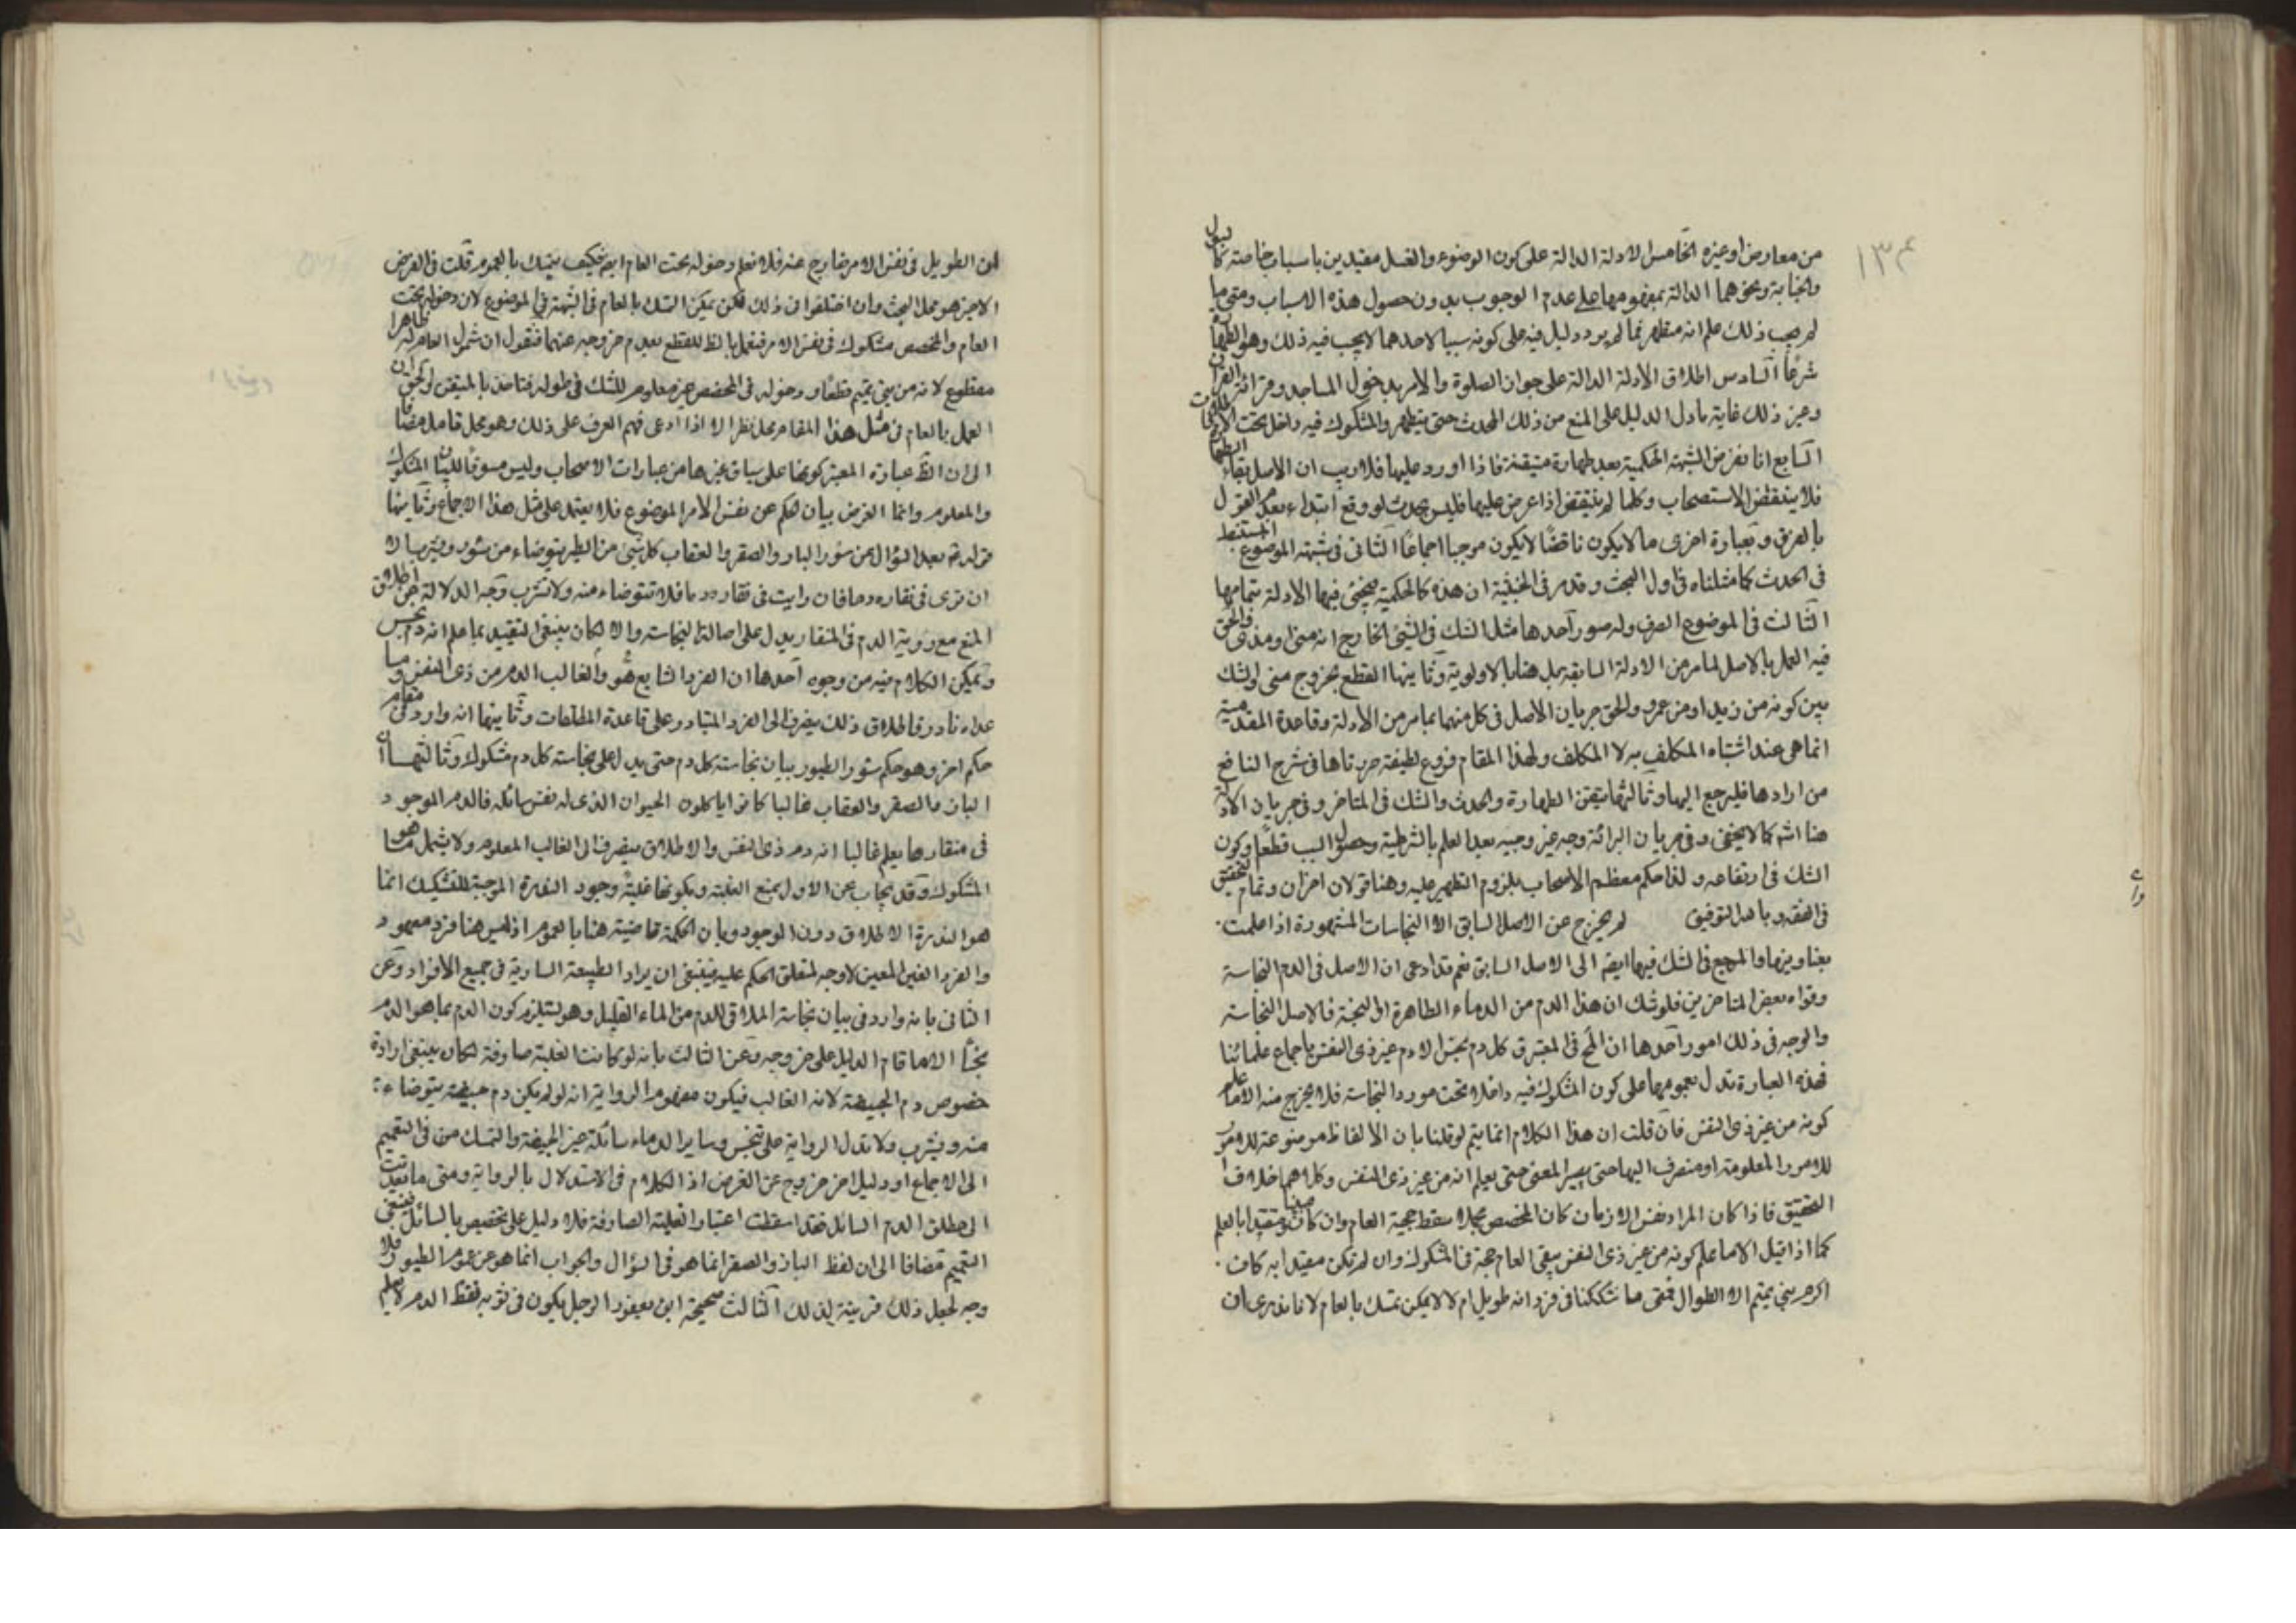 من معارض او غيره الخامس الادلة الدالة على كون الوضوء والغسل مقيدين باسباب خاصة كالبول
والجنابة ونحوهما الدالة بمفهومها على عدم الوجوب بدون حصول هذه الاسباب ومتى ما
لم يجب ذلك علم انه متطهر فما لم يرد دليل فيه على كونه سببا لاحدهما لا يجب فيه ذلك وهو الطهارة
شرعا السادس اطلاق الادلة الدالة على جواز الصلوة والامر بدخول المساجد وقرائة القران
وغير ذلك غاية ما دل الدليل على المنع من ذلك المحدث حتى يتطهر والمشكوك فيه داخل تحت
السابع انا نفرض الشبهة الحكمية بعد طهارة متيقنة فاذا اورد عليها فلا ريب ان الاصل بقاء الطهارة
فلا ينتقض الاستصحاب وكلما لم ينتقض اذا عرض عليها فليس بحدث لو وقع ابتداء بعدم القول
بالفرق وبعبارة اخرى ما لا يكون ناقضا لا يكون موجبا اجماعا الثاني في شبهة الموضوع المستنبط
في الحدث كما مثلناه في اول البحث وقد مر في الخبثية ان هذه كالحكمية فيجئ فيها الادلة بتمامها
الثالث في الموضوع الصرف وله صور احدها مثل الشك في الشئ الخارج انه مني او مذي والحق
فيه العمل بالاصل لما مر من الادلة السابقة بل هنا بالاولوية وثانيها القطع بخروج مني لو شك
بين كونه من زيد او من عمرو والحق جريان الاصل في كل منهما بما مر من الادلة وقاعدة المقدمية
انما هي عند اشتباه المكلف به لا المكلف ولهذا المقام فروع لطيفة حررناها في شرح النافع
من ارادها فليرجع اليها وثالثها تيقن الطهارة والحدث والشك في المتاخر وفي جريان الادلة
هنا كما لا يخفى وفي جريان البرائة وجه غير وجيه بعد العلم بالشرطية وحصول السبب قطعا وكون
الشك في ارتفاعه ولذا حكم معظم الاصحاب بلزوم التطهير عليه وهنا قولان اخران وتمام التحقيق
في الفقه وبالله التوفيق لم يخرج عن الاصل السابق الا النجاسات المشهورة اذا علمت
بعناوينها والمرجع في الشك فيها ايضا الى الاصل السابق نعم قد ادعى ان الاصل في الدم النجاسة
وقواه بعض المتاخرين فلو شك ان هذا الدم من الدماء الطاهرة او النجسة فالاصل النجاسة
والوجه في ذلك امور احدها ان المح في المعتبر ق كل دم نجس الا دم غير ذي النفس باجماع علمائنا
فهذه العبارة تدل بعمومها على كون المشكوك فيه داخلا تحت مورد النجاسة فلا يخرج منه الا ما علم
كونه من غير ذي النفس فان قلت ان هذا الكلام انما يتم لو قلنا بان الالفاظ موضوعة للامور
للامور المعلومة او منصرف اليها حتى يصير المعنى حتى يعلم انه من غير ذي النفس وكلاهما خلاف
التحقيق فاذا كان المراد نفس الا كان المخصص مجملا سقط حجية العام وان كان مبينا ومقيدا بالعلم
كما اذا قيل الا ما علم كونه من غير ذي النفس يبقى العام حجة في المشكوك وان لم تكن مقيدا به كان
اكرم بني تميم الا الطوال فمتى ما شككنا في فرد انه طويل ام لا لا يمكن تمسك بالعام لانا ندري ان
الطويل في نفس الامر خارج عنه فلا نعلم دخوله تحت العام ايضا فكيف يتمسك بالعموم قلت في الفرض
الاخير هو محل البحث وان اختلفوا في ذلك لكن يمكن التمسك بالعام في الشبهة في الموضوع لان دخوله تحت
العام والمخصص مشكوك في نفس الامر فنعمل بالظ للقطع بعدم خروجه عنهما فنقول ان شمول العام له ظاهرا
مقطوع لانه من بني تميم قطعا ودخوله في المخصص غير معلوم للشك في طوله فتاخذ بالمتيقن لكن الحق ان
العمل بالعام في مثل هذا المقام محل نظر الا اذا ادعى فهم العرف على ذلك وهو محل تامل مضافا
الى ان الظ عبارة المعتبر كونها على سياق غيرها من عبارات الاصحاب وليس مسوقا لبيان المشكوك
والمعلوم وانما الغرض بيان حكم عن نفس الامر الموضوع فلا يعتمد على مثل هذا الاجماع وثانيها
قوله ع بعد السؤال عن سؤر الباز والصقر والعقاب كل شئ من الطير يتوضاء من سؤره ويشرب الا
ان ترى في منقاره دما فان رايت في منقاره دما فلا تتوضاء منه ولا تشرب وجه الدلالة ان اطلاق
المنع مع رؤية الدم في المنقار يدل على اصالة النجاسة والا لكان ينبغي التقييد بما علم انه دم نجس
ويمكن الكلام فيه من وجوه احدها ان الفرد الشايع هو والغالب الدم من ذي النفس وما
عداه نادر فاطلاق ذلك ينصرف الى الفرد المتبادر على قاعدة المطلقات وثانيها انه وارد في مقام
حكم اخر وهو حكم سؤر الطيور بيان نجاسة كل دم حتى يدل على نجاسة كل دم مشكوك وثالثها ان
الباز والصقر والعقاب غالبا كانوا ياكلون الحيوان الذي له نفس سائلة فالدم الموجود
في منقارها يعلم غالبا انه دم ذي النفس والاطلاق ينصرف الى الغالب المعلوم ولا يشمل ما هو
المشكوك وقد يجاب عن الاول بمنع الغلبة وبكونها غلبة وجود الندرة الموجبة للتشكيك انما
هو الندرة الاطلاق دون الوجود وبان الحكمة قاضية هنا بالعموم اذ ليس هنا فرد معهود
والفرد الغير المعين لا وجه لتعلق الحكم عليه فينبغي ان يراد الطبيعة السارية في جميع الافراد وعن
الثاني بانه وارد في بيان نجاسة الملاقي للدم من الماء القليل وهو يستلزم كون الدم بما هو الدم
نجسا الا ما قام الدليل على خروجه وعن الثالث بانه لو كانت الغلبة صارفة لكان ينبغي ارادة
خصوص دم الجيفة لانه الغالب فيكون مفهوم الرواية انه لو لم يكن دم جيفة يتوضاء
منه ويشرب ولا تدل الرواية على تنجس وساير الدماء سائلة غير الجيفة والتمسك في التعميم
الى الاجماع او دليل اخر خروج عن الفرض اذ الكلام في الاستدلال بالرواية ومتى ما تعدت
الى مطلق الدم السائل فقد اسقطت اعتبار الغلبة الصارفة فلا دليل على تخصيص بالسائل فينبغي
التعميم مضافا الى ان لفظ الباز والصقر انما هو في السؤال والجواب انما هو عن عموم الطيور فلا
وجه لجعل ذلك قرينة لذلك الثالث صحيحة ابن يعفور الرجل يكون في ثوبه نقط الدم لا يعلم